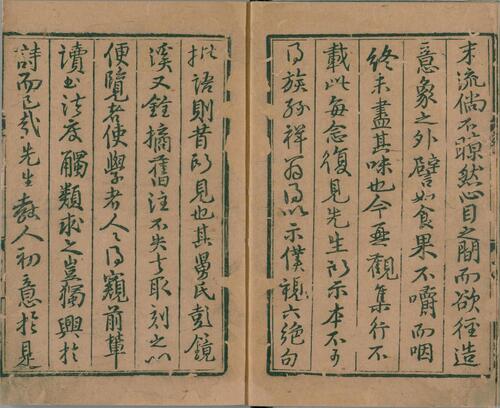 末流倘不瞭然心目之間而欲徑造
意象之外譬如食果不嚼而咽
終未盡其味也今無觀集行不
載此每念復見先生所示本不可
得族孫祥翁得以示僕視六絕句
批語則昔所見也其舅氏彭鏡
溪又銓摘舊注不失去取刻之以
便覽者使學者人人得窺前輩
讀書法度觸類求之豈獨興於
詩而已哉先生教人初意於是